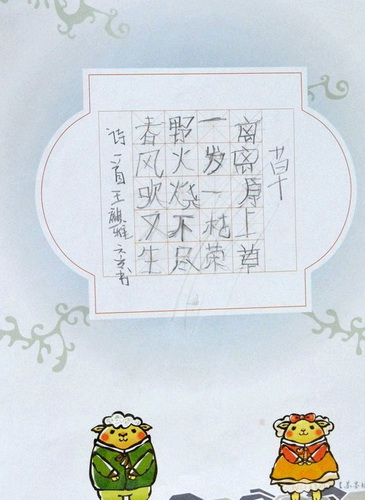 草
离离原上草
一岁一枯荣
野火烧不尽
春风吹又生
诗一首王麒雅六岁书